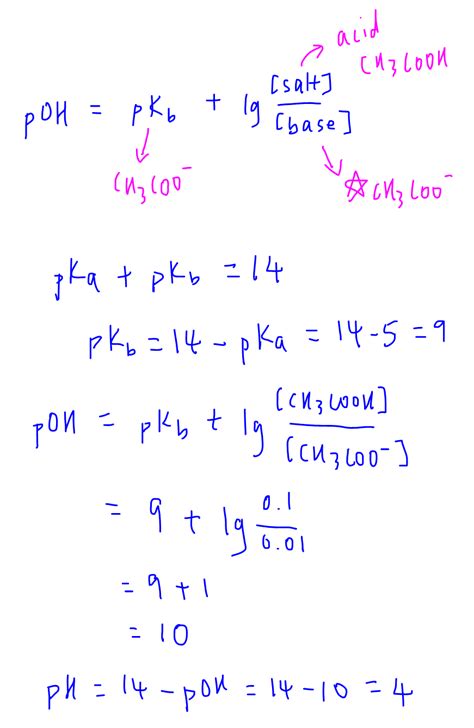 acid
CH3COOH
pOH = pKb + lg [salt]/[base]
CH3COO⁻
☆CH3COO⁻
pKa + pKb = 14
pKb = 14 - pKa = 14-5 = 9
pOH = pKb + lg [CH3COOH]/[CH3COO⁻]
= 9 + lg 0.1/0.01
= 9 + 1
= 10
pH = 14 - pOH = 14 - 10 = 4